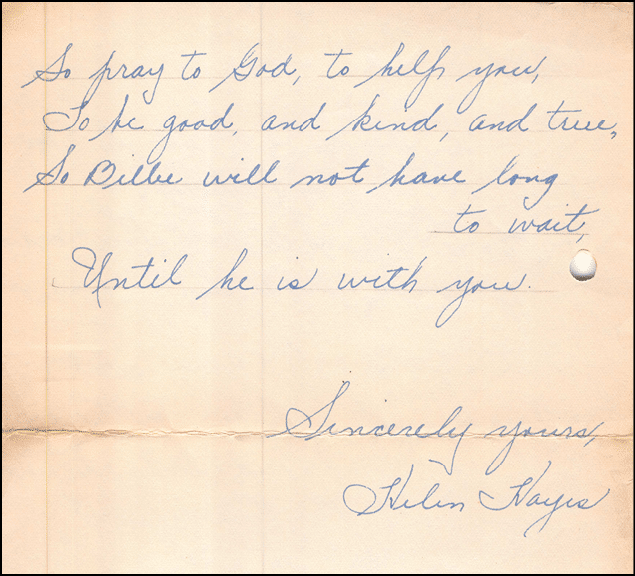 So pray to God, to help you,
To be good, and kind, and true,
So Billie will not have long
to wait,
Until he is with you.
Sincerely yours,
Helen Hayes